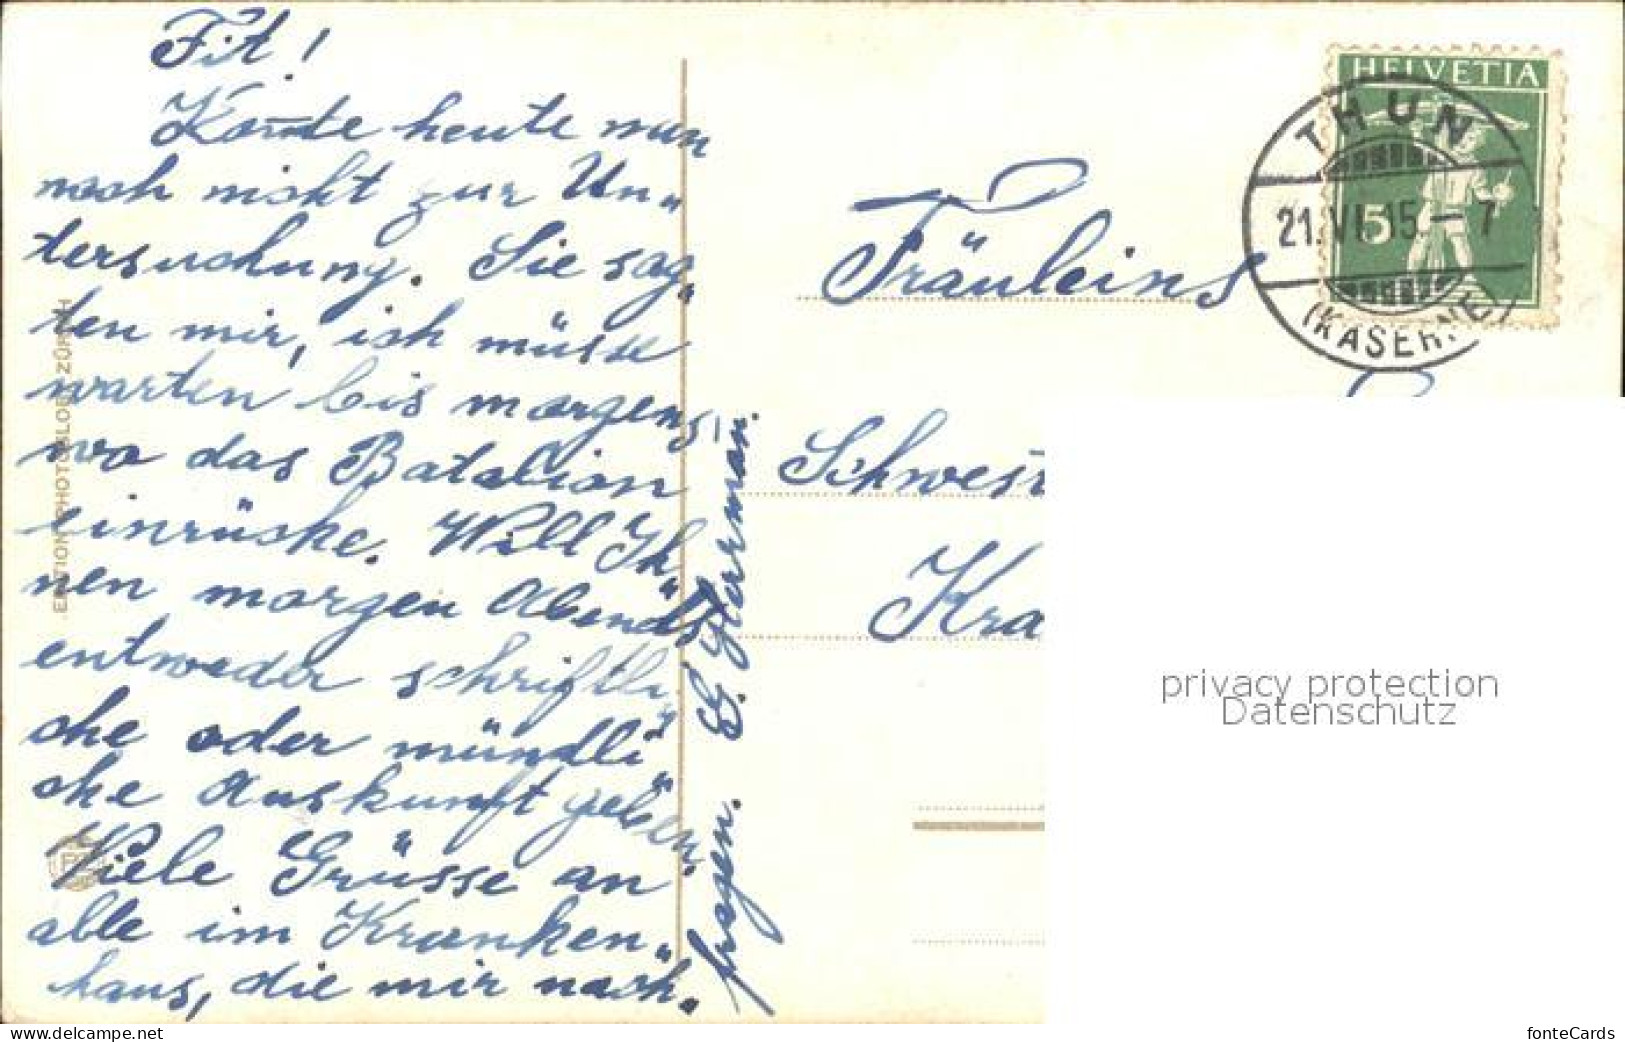 Konnte heute nun
noch nicht zur Un-
tersuchung. Sie sag-
ten mir, ich müsse
warten bis morgens,
wo das Batalion
einrücke. Will Ih-
nen morgen Abends
entweder schriftli-
che oder mündli-
che Auskunft geben.
Viele Grüsse an
alle im Kranken-
haus, die mir nach-
fragen.
HELVETIA
5
THUN
21.VI.15.–7
(KASERNE)
Fräuleins
Schwest
Kra
privacy protection
Datenschutz
delcampe.net
fonteCards